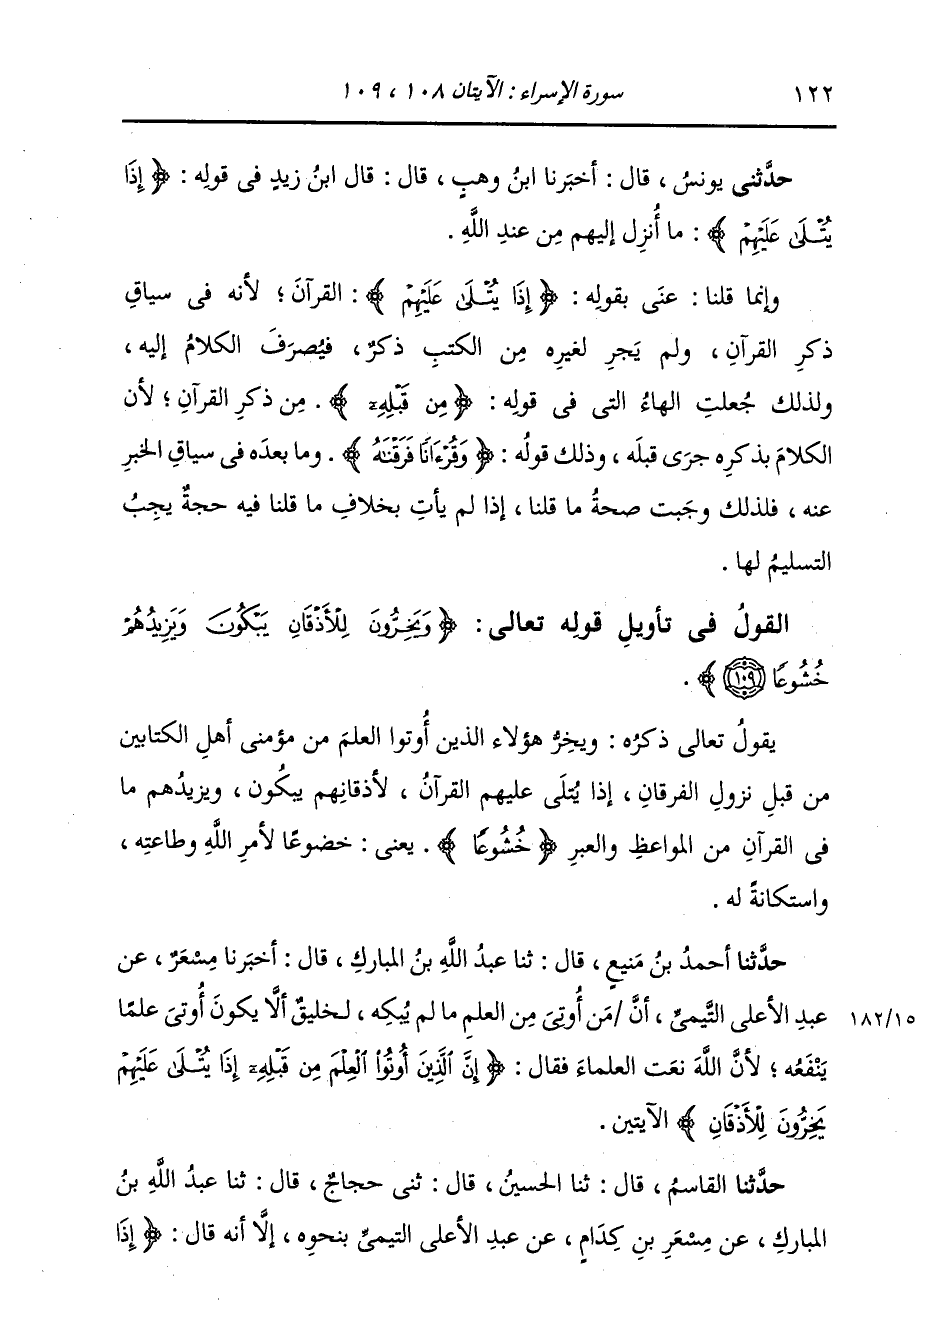 ١٢٢ سورة الإسراء : الآيتان ١٠٨ ، ١٠٩
حدَّثنى يونسُ ، قال : أخبَرنا ابنُ وهبٍ ، قال : قال ابنُ زيدٍ فى قولِه : ﴿ إِذَا
يُتْلَىٰ عَلَيْهِمْ ﴾ : ما أُنزِل إليهم مِن عندِ اللَّهِ .
وإنما قلنا : عنَى بقولِه : ﴿ إِذَا يُتْلَىٰ عَلَيْهِمْ ﴾ : القرآنَ ؛ لأنه فى سياقِ
ذكرِ القرآنِ ، ولم يَجرِ لغيرِه مِن الكتبِ ذكرٌ ، فيُصرَفَ الكلامُ إليه ،
ولذلك جُعلتِ الهاءُ التى فى قولِه : ﴿ مِن قَبْلِهِۦٓ ﴾ . مِن ذكرِ القرآنِ ؛ لأن
الكلامَ بذكرِه جرَى قبلَه ، وذلك قولُه : ﴿ وَقُرْءَانًا فَرَقْنَٰهُ ﴾ . وما بعدَه فى سياقِ الخبرِ
عنه ، فلذلك وجَبت صحةُ ما قلنا ، إذا لم يأتِ بخلافِ ما قلنا فيه حجةٌ يجِبُ
التسليمُ لها .
القولُ فى تأويلِ قولِه تعالى : ﴿ وَيَخِرُّونَ لِلْأَذْقَانِ يَبْكُونَ وَيَزِيدُهُمْ
خُشُوعًا ۝١٠٩ ﴾ .
يقولُ تعالى ذكرُه : ويخِرُّ هؤلاء الذين أُوتوا العلمَ من مؤمنى أهلِ الكتابين
من قبلِ نزولِ الفرقانِ ، إذا يُتلَى عليهم القرآنُ ، لأذقانِهم يبكُون ، ويزيدُهم ما
فى القرآنِ من المواعظِ والعبرِ ﴿ خُشُوعًا ﴾ . يعنى : خضوعًا لأمرِ اللَّهِ وطاعتِه ،
واستكانةً له .
حدَّثنا أحمدُ بنُ مَنيعٍ ، قال : ثنا عبدُ اللَّهِ بنُ المباركِ ، قال : أخبَرنا مِسْعَرٌ ، عن
عبدِ الأعلى التَّيمىِّ ، أنَّ /مَن أُوتِىَ مِن العلمِ ما لم يُبكِه ، لخليقٌ ألَّا يكونَ أُوتىَ علمًا ١٨٢/١٥
يَنْفَعُه ؛ لأنَّ اللَّهَ نعَت العلماءَ فقال : ﴿ إِنَّ ٱلَّذِينَ أُوتُوا۟ ٱلْعِلْمَ مِن قَبْلِهِۦٓ إِذَا يُتْلَىٰ عَلَيْهِمْ
يَخِرُّونَ لِلْأَذْقَانِ ﴾ الآيتين .
حدَّثنا القاسمُ ، قال : ثنا الحسينُ ، قال : ثنى حجاجٌ ، قال : ثنا عبدُ اللَّهِ بنُ
المباركِ ، عن مِسْعَرِ بنِ كِدَامٍ ، عن عبدِ الأعلى التيمىِّ بنحوِه ، إلَّا أنه قال : ﴿ إِذَا